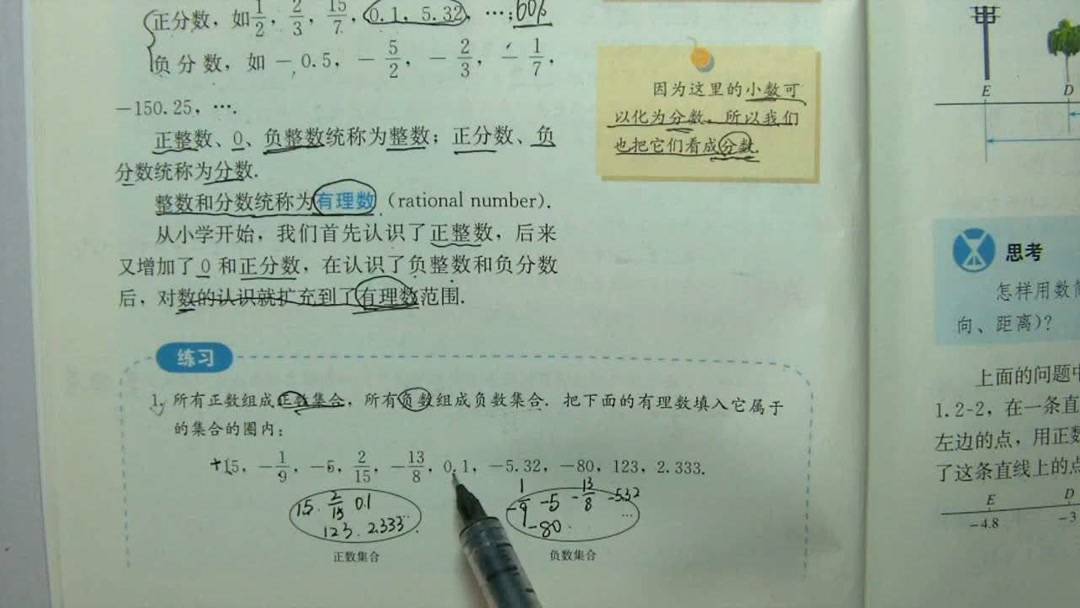 正分数，如1/2，2/3，15/7，0.1，5.32，…；60%
负分数，如－0.5，－5/2，－2/3，－1/7，
－150.25，….
正整数、0、负整数统称为整数；正分数、负
分数统称为分数.
整数和分数统称为有理数（rational number）.
从小学开始，我们首先认识了正整数，后来
又增加了0和正分数，在认识了负整数和负分数
后，对数的认识就扩充到了有理数范围.
因为这里的小数可
以化为分数，所以我们
也把它们看成分数.
练习
1. 所有正数组成正数集合，所有负数组成负数集合. 把下面的有理数填入它属于
的集合的圈内：
+15，－1/9，－5，2/15，－13/8，0.1，－5.32，－80，123，2.333.
15. 2/15 0.1
123. 2.333…
正数集合
－1/9 －5 －13/8 －5.32
－80. …
负数集合
E D
思考
怎样用数
向、距离）？
上面的问题中
1.2-2，在一条直
左边的点，用正数
了这条直线上的点
E D
－4.8 －3